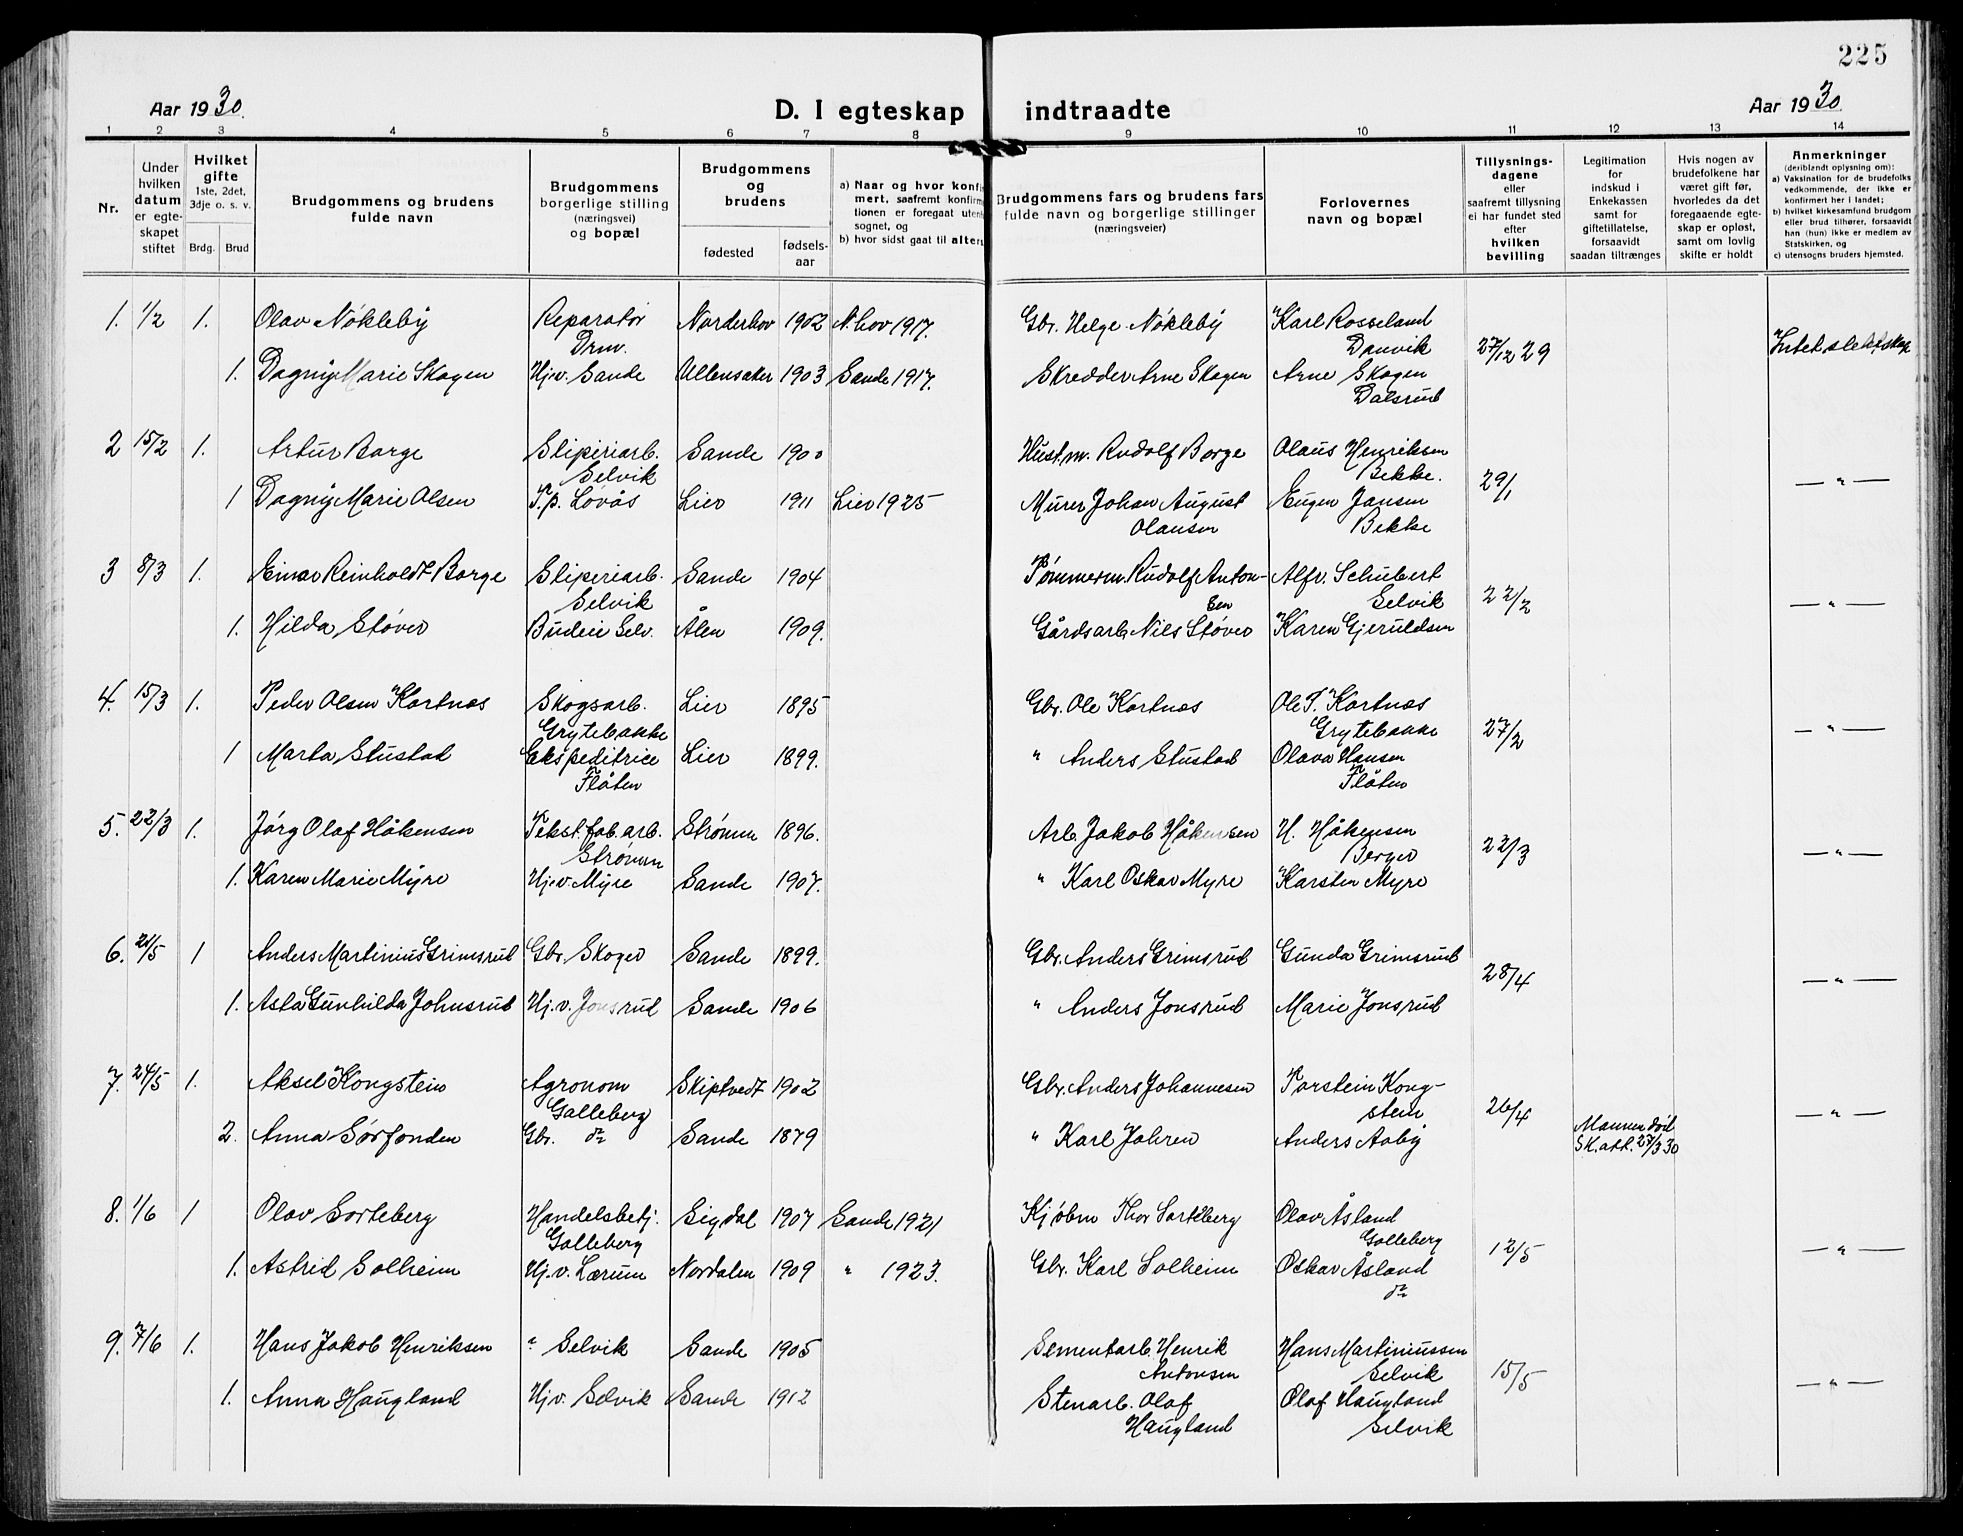 225
Aar 1930.
D. I egteskap indtraadte
Aar 1930.
1 2 3 4 5 6 7 8 9 10 11 12 13 14
Nr.
Under hvilken datum er egteskapet stiftet
Hvilket gifte
1ste, 2det, 3dje o. s. v.
Brdg. Brud
Brudgommens og brudens fulde navn
Brudgommens borgerlige stilling (næringsvei) og bopæl
Brudgommens og brudens
fødested
fødsels-aar
a) Naar og hvor konfirmert, saafremt konfirmationen er foregaat utensognet, og
b) hvor sidst gaat til alters
Brudgommens fars og brudens fars fulde navn og borgerlige stillinger (næringsveier)
Forlovernes navn og bopæl
Tillysningsdagene eller saafremt tillysning ei har fundet sted efter hvilken bevilling
Legitimation for indskud i Enkekassen samt for giftetillatelse, forsaavidt saadan tiltrænges
Hvis nogen av brudefolkene har været gift før, hvorledes da det foregaaende egteskap er opløst, samt om lovlig skifte er holdt
Anmerkninger
(deriblandt oplysning om):
a) Vaksination for de brudefolks vedkommende, der ikke er konfirmert her i landet;
b) hvilket kirkesamfund brudgom eller brud tilhører, forsaavidt han (hun) ikke er medlem av Statskirken, og
c) utensogns bruders hjemsted.
1. 1/2 1. Olav Nökleby Reparatör Norderhov 1902 N.hov 1917. Gbr. Helge Nökleby Karl Rosseland
Drm. Danvik 27/12 29 Intet slektskap
1. Dagny Marie Skogen Hj.v. Sande Ullensaker 1903 Sande 1917. Skredder Arne Skogen Arne Skogen
Dalsrud
2 15/2 1. Artur Borge Sliperiarb. Sande 1900 Hust.m. Rudolf Borge Olaus Henriksen
Selvik Bekke. 29/1 — " —
1 Dagny Marie Olsen T.p. Lövås Lier 1911 Lier 1925 Murer Johan August Eugen Jansen
Olausen Bekke
3 8/3 1. Einar Reinholdt Borge Sliperiarb. Sande 1904 Tømmerm. Rudolf Anton- Alfr. Schubert
Selvik sen Selvik 22/2 — " —
1. Hilda Støver Budeie Selv. Ålen 1909. Gårdsarb. Nils Støver Karen Gjeruldsen
4. 15/3 1. Peder Olsen Kortnes Skogsarb. Lier 1895 Gbr. Ole Kortnes Ole P. Kortnes
Grytebakke Grytebakke 27/2 — " —
1 Marta Stustad Ekspeditrice Lier 1899. " Anders Stustad Olava Hansen
Flåten Flåten
5. 22/3 1. Jörg Olaf Håkensen Tekst.fab.arb. Strømm 1896. Arb. Jakob Håkensen H. Håkensen
Strømm Berger 22/3 — " —
1. Karen Marie Myre Hj.v. Myre Sande 1907. " Karl Oskar Myre Karsten Myre
6. 21/5 1 Anders Martinius Grimsrud Gbr. Skoger Sande 1899. Gbr. Anders Grimsrud Gunda Grimsrud
28/4 — " —
1. Asta Gunhilda Johnsrud Hj.v. Jonsrud Sande 1906 " Anders Jonsrud Marie Jonsrud
7. 24/5 1. Aksel Kongstein Agronom Skiptvedt 1902 Gbr. Anders Johannesen Torstein Kong-
Galleberg stein 26/4 — " —
2. Anna Sørfonden Gbr. do Sande 1879 " Karl Jahren Anders Aaby Mannen död
Sk.att. 27/3 30
8. 1/6 1 Olav Sorteberg Handelsbetj. Sigdal 1907 Sande 1921 Kjøbm Thor Sorteberg Olav Åsland
Galleberg Galleberg 12/5 — " —
1. Astrid Solheim Hj.v. Lærum Nordalen 1909 " 1923. Gbr. Karl Solheim Oskar Åsland
do
9. 7/6 1. Hans Jakob Henriksen " Selvik Sande 1905 Sementarb. Henrik Hans Martiniussen
Antonsen Selvik 15/5 — " —
1. Anna Haugland Hj.v. Selvik Sande 1912 Stenarb. Olaf Olaf Haugland
Haugland Selvik